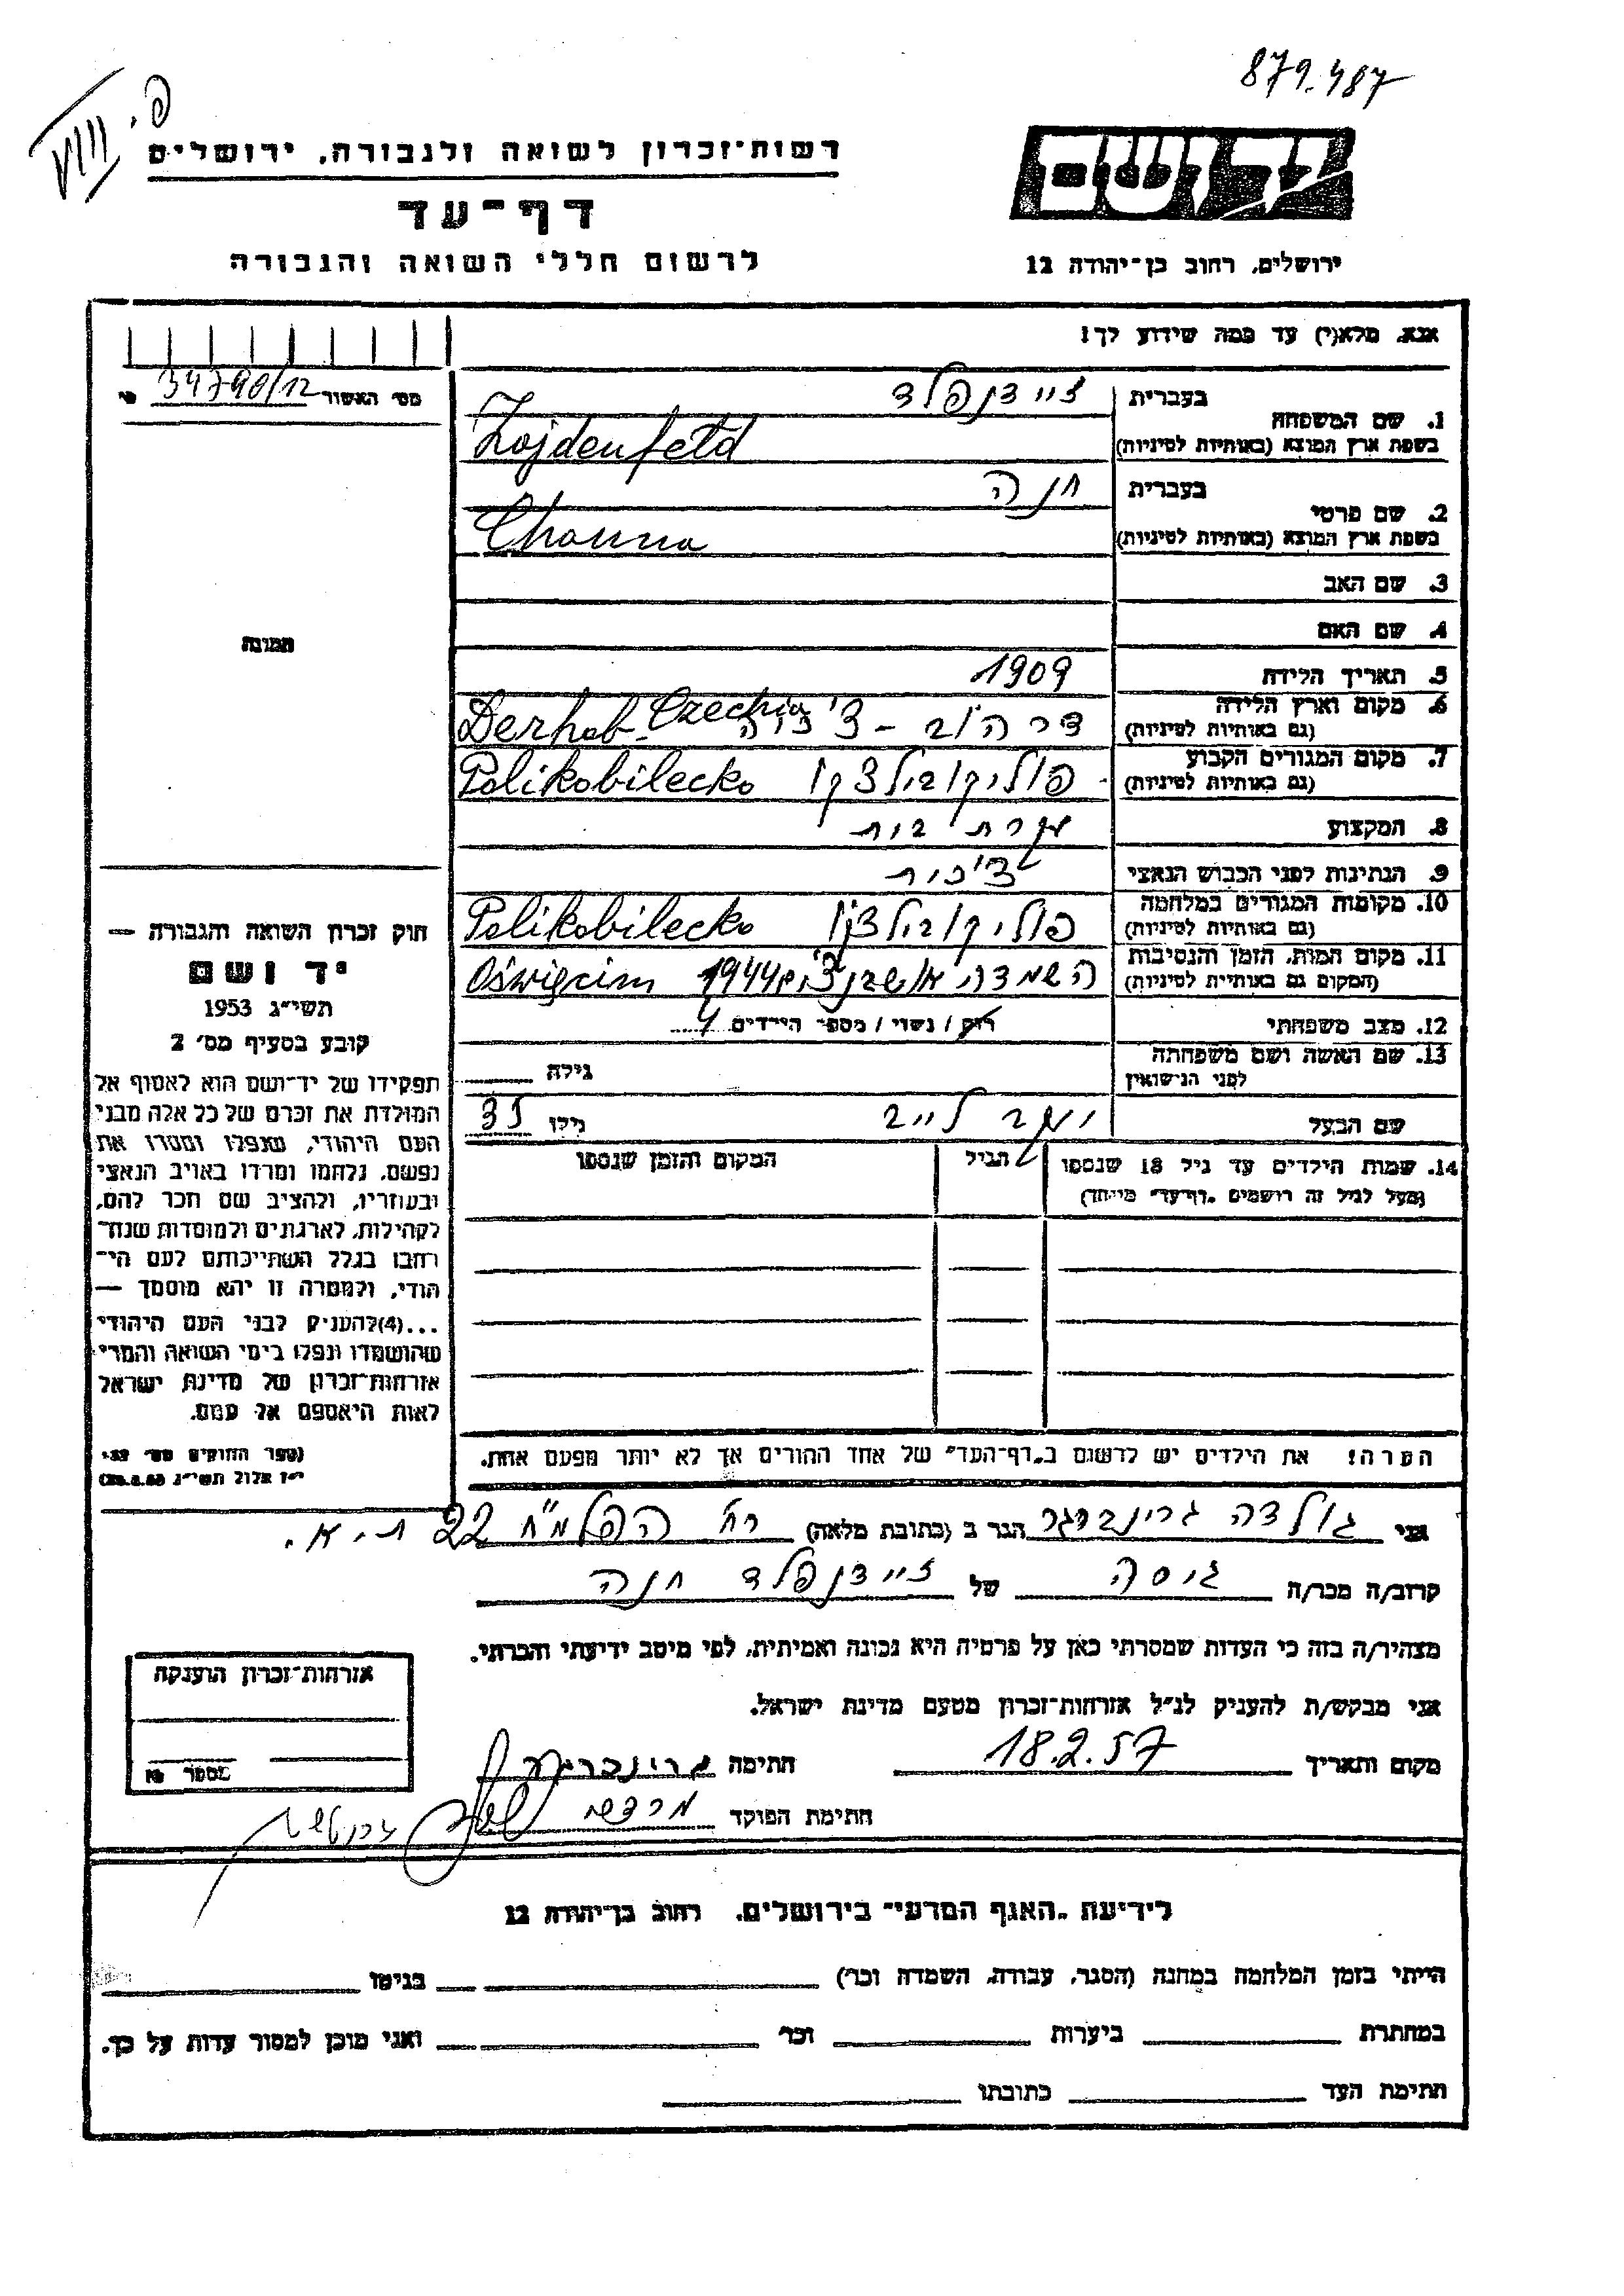 879.487
פ. VIII
יד ושם
רשות־זכרון לשואה ולגבורה, ירושלים
דף־עד
ירושלים, רחוב בן־יהודה 12
לרשום חללי השואה והגבורה
אנא, מלא(י) עד כמה שידוע לך!
מס' האשור 34790/12
1. שם המשפחה
בעברית זיידנפלד
בשפת ארץ המוצא (באותיות לטיניות) Zojdenfeld
2. שם פרטי
בעברית חנה
בשפת ארץ המוצא (באותיות לטיניות) Channa
3. שם האב
4. שם האם
תמונה
5. תאריך הלידה 1909
6. מקום וארץ הלידה
(גם באותיות לטיניות) דרהוב - צ'כיה Derhob - Czechia
7. מקום המגורים הקבוע
(גם באותיות לטיניות) פוליקובילצקו Polikobilecko
8. המקצוע עקרת בית
9. הנתינות לפני הכבוש הנאצי צ'כית
10. מקומות המגורים במלחמה
(גם באותיות לטיניות) פוליקובילצקו Polikobilecko
11. מקום המות, הזמן והנסיבות
(המקום גם באותיות לטיניות) השמדה, אושבנצ'ים 1944 Oświęcim
12. מצב משפחתי רוק / נשוי / מספר הילדים 4
13. שם האשה ושם משפחתה
לפני הנישואין גילה
שם הבעל יעקב לייב גילו 35
14. שמות הילדים עד גיל 18 שנספו הגיל המקום והזמן שנספו
(מעל לגיל זה רושמים „דף־עד" מיוחד)
הערה! את הילדים יש לרשום ב„דף־העד" של אחד ההורים אך לא יותר מפעם אחת.
חוק זכרון השואה והגבורה —
יד ושם
תשי"ג 1953
קובע בסעיף מס' 2
תפקידו של יד־ושם הוא לאסוף אל
המולדת את זכרם של כל אלה מבני
העם היהודי, שנפלו ומסרו את
נפשם, נלחמו ומרדו באויב הנאצי
ובעוזריו, ולהציב שם וזכר להם,
לקהילות, לארגונים ולמוסדות שנח־
רבו בגלל השתייכותם לעם הי־
הודי, ולמטרה זו יהא מוסמך —
...(4)להעניק לבני העם היהודי
שהושמדו ונפלו בימי השואה והמרי
אזרחות־זכרון של מדינת ישראל
לאות היאספם אל עמם.
(ספר החוקים מס' 132,
י"ז אלול תשי"ג 28.8.53)
אני גולדה גרינברגר הגר ב (כתובת מלאה) רח' הפלמ"ח 22 ת.א.
קרוב/ה מכר/ה גיסה של זיידנפלד חנה
מצהיר/ה בזה כי העדות שמסרתי כאן על פרטיה היא נכונה ואמיתית, לפי מיטב ידיעתי והכרתי.
אני מבקש/ת להעניק לנ"ל אזרחות־זכרון מטעם מדינת ישראל.
מקום ותאריך 18.2.57 חתימה
חתימת הפוקד
אזרחות־זכרון הוענקה
מספר
לידיעת „האגף המדעי" בירושלים, רחוב בן־יהודה 12
הייתי בזמן המלחמה במחנה (הסגר, עבודה, השמדה וכו') בגיטו
במחתרת ביערות וכו' ואני מוכן למסור עדות על כך.
חתימת העד כתובתו